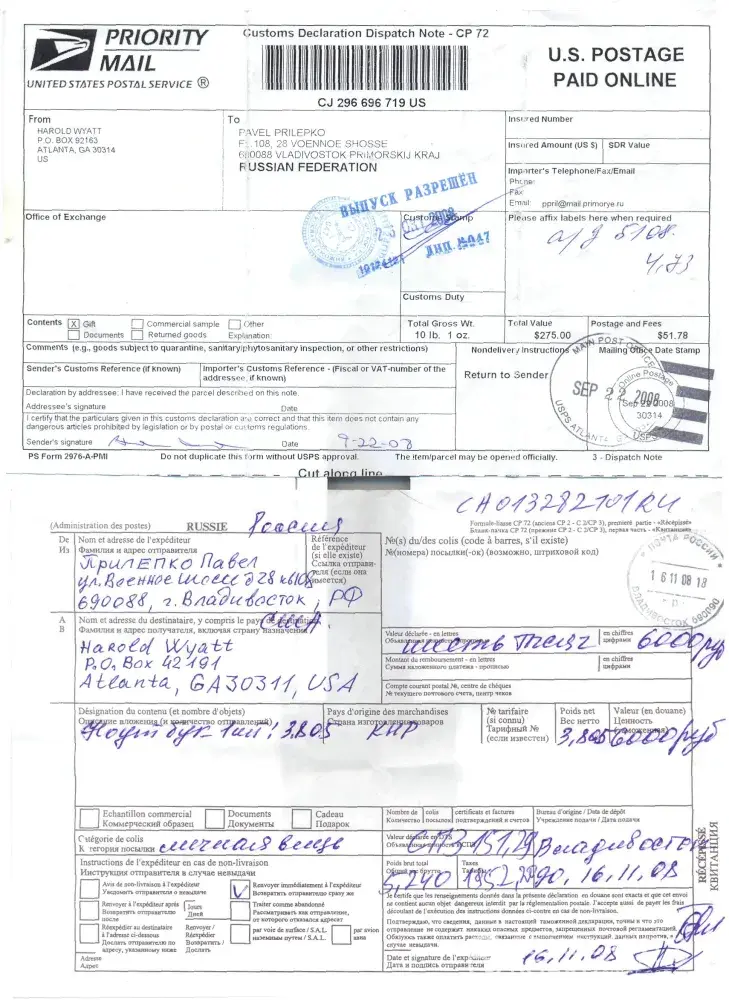 PRIORITY
MAIL
UNITED STATES POSTAL SERVICE ®
Customs Declaration Dispatch Note - CP 72
CJ 296 696 719 US
U.S. POSTAGE
PAID ONLINE
From
HAROLD WYATT
P.O. BOX 92163
ATLANTA, GA 30314
US
To
PAVEL PRILEPKO
108, 28 VOENNOE SHOSSE
690088 VLADIVOSTOK PRIMORSKIJ KRAJ
RUSSIAN FEDERATION
Insured Number
Insured Amount (US $) SDR Value
Importer's Telephone/Fax/Email
Phone:
Fax:
Email: ppril@mail.primorye.ru
ВЫПУСК РАЗРЕШЁН
Office of Exchange
Customs Stamp
ДИП. №047
Please affix labels here when required
а/д 5108.
4,73
Customs Duty
Contents X Gift Commercial sample Other
Documents Returned goods Explanation:
Total Gross Wt.
10 lb. 1 oz.
Total Value
$275.00
Postage and Fees
$51.78
Comments (e.g., goods subject to quarantine, sanitary/phytosanitary inspection, or other restrictions)
Nondelivery Instructions
Return to Sender
Mailing Office Date Stamp
MAIN POST OFFICE
SEP 22 2008
USPS ATLANTA
Online Postage
Sep 22 2008
30314
USPS
Sender's Customs Reference (if known)
Importer's Customs Reference - (Fiscal or VAT-number of the
addressee, if known)
Declaration by addressee: I have received the parcel described on this note.
Addressee's signature Date
I certify that the particulars given in this customs declaration are correct and that this item does not contain any
dangerous articles prohibited by legislation or by postal or customs regulations.
Sender's signature Date 9-22-08
PS Form 2976-A-PMI Do not duplicate this form without USPS approval. The item/parcel may be opened officially. 3 - Dispatch Note
Cut along line
CH013282101RU
(Administration des postes) RUSSIE Россия
Formule-liasse CP 72 (anciens CP 2 - C 2/CP 3), première partie - «Récépissé»
Бланк-пачка CP 72 (прежние CP 2 - C 2/CP 3), первая часть - «Квитанция»
De
Из
Nom et adresse de l'expéditeur
Фамилия и адрес отправителя
Référence
de l'expéditeur
(si elle existe)
Ссылка отправи-
теля (если она
имеется)
Прилепко Павел
ул. Военное шоссе д 28 кв 108
690088, г. Владивосток, РФ
№(s) du/des colis (code à barres, s'il existe)
№(номера) посылки(-ок) (возможно, штриховой код)
ПОЧТА РОССИИ
16 11 08 18
ВЛАДИВОСТОК 690090
A
В
Nom et adresse du destinataire, y compris le pays de destination
Фамилия и адрес получателя, включая страну назначения
США
Harold Wyatt
P.O. Box 42191
Atlanta, GA30311, USA
Valeur déclarée - en lettres
шесть тысяч
en chiffres
цифрами
6000 руб
Montant du remboursement - en lettres
Сумма наложенного платежа - прописью
en chiffres
цифрами
Compte courant postal №, centre de chèques
№ текущего почтового счета, центр чеков
Désignation du contenu (et nombre d'objets)
Описание вложения (и количество отправлений)
Ноутбук 1шт! 3,805
Pays d'origine des marchandises
Страна изготовления товаров
КНР
№ tarifaire
(si connu)
Тарифный №
(если известен)
Poids net
Вес нетто
3,805
Valeur (en douane)
Ценность
(таможенная)
6000 руб
Echantillon commercial
Коммерческий образец
Documents
Документы
Cadeau
Подарок
Nombre de colis
certificats et factures
Bureau d'origine / Date de dépôt
Учреждение подачи / Дата подачи
Catégorie de colis
К тегории посылки
личная вещь
Valeur déclarée en DTS
Владивосток
Instructions de l'expéditeur en cas de non-livraison
Инструкция отправителя в случае невыдачи
Poids brut total
5,240
Taxes
16.11.08
RÉCÉPISSÉ
КВИТАНЦИЯ
Avis de non-livraison à l'expéditeur
Уведомить отправителя о невыдаче
Renvoyer immédiatement à l'expéditeur
Возвратить отправителю сразу же
Renvoyer à l'expéditeur après
Возвратить отправителю
после
Jours
Дней
Traiter comme abandonné
Рассматривать как отправление,
от которого отказался адресат
Réexpédier au destinataire
à l'adresse ci-dessous
Дослать отправителю по
адресу, указанному ниже
Renvoyer /
Réexpédier
Возвратить /
Дослать
par voie de surface / S.A.L
наземным путем / S.A.L
par avion
авиа
Adresse
Адрес
Je certifie que les renseignements donnés dans la présente déclaration en douane sont exacts et que cet envoi
ne contient aucun objet dangereux interdit par la réglementation postale. J'accepte aussi de payer les frais
découlant de l'exécution des instructions données ci-contre en cas de non-livraison.
Подтверждаю, что сведения, данные в настоящей таможенной декларации, точны и что это
отправление не содержит никаких опасных предметов, запрещенных почтовой регламентацией.
Обязуюсь также оплатить расходы, связанные с выполнением инструкций, данных напротив, в
случае невыдачи.
Date et signature de l'expéditeur
Дата и подпись отправителя
16.11.08